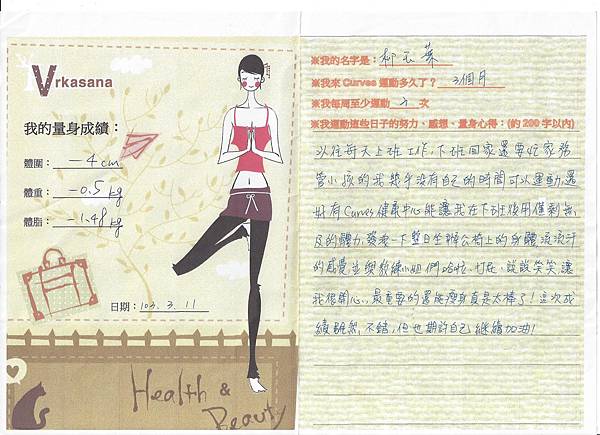 Vrkasana
我的量身成績：
體圍： －4cm
體重： －0.5kg
體脂： －1.48kg
日期：103.3.11
Health & Beauty
※我的名字是：柯玉葉
※我來 Curves 運動多久了？ 3個月
※我每周至少運動 次
※我運動這些日子的努力、感想、量身心得：(約 200 字以內)
以往每天上班工作，下班回家還要忙家務
管小孩的我幾乎沒有自己的時間可以運動，還
好有Curves健康中心能讓我在下班後用僅剩無
及的體力，發洩一下整日坐辦公椅上的身體，流流汗
的感覺並與教練小姐們哈忙、打屁、說說笑笑，讓
我很開心，最重要的還能瘦身真是太棒了！這次成
績雖然不錯，但也期許自己繼續加油！